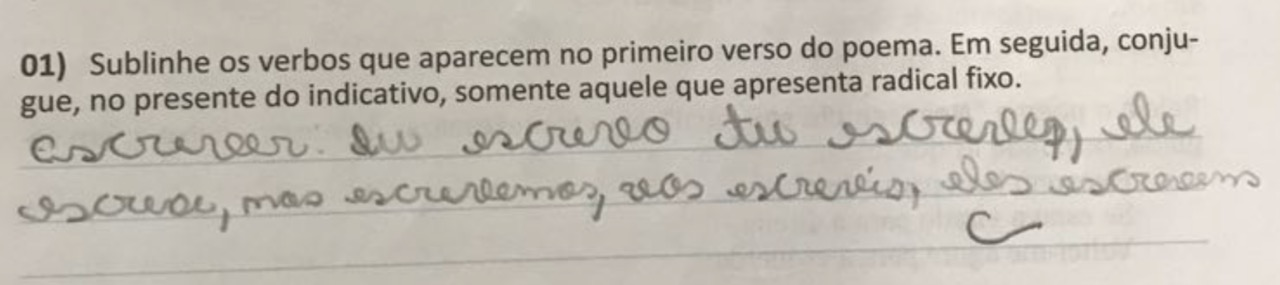 01) Sublinhe os verbos que aparecem no primeiro verso do poema. Em seguida, conju-
gue, no presente do indicativo, somente aquele que apresenta radical fixo.
escrever: Eu escrevo tu escreves, ele
escreve, nos escrevemos, vos escreveis, eles escrevem
C